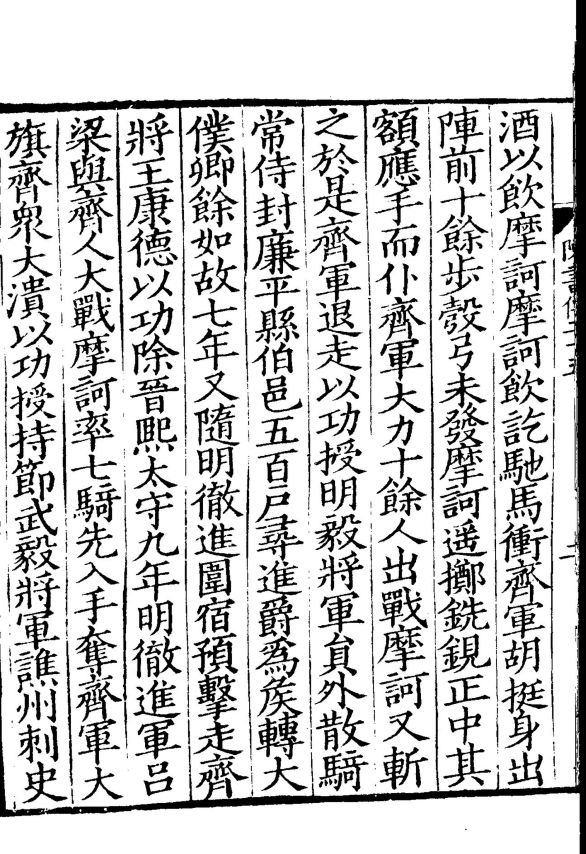 酒以飲摩訶摩訶飲訖馳馬衝齊軍胡挺身出
陣前十餘步彀弓未發摩訶遥擲銑鋧正中其
額應手而仆齊軍大力十餘人出戰摩訶又斬
之於是齊軍退走以功授明毅將軍貟外散騎
常侍封廉平縣伯邑五百戶尋進爵爲侯轉大
僕卿餘如故七年又隨明徹進圍宿預擊走齊
將王康德以功除晉熙太守九年明徹進軍吕
梁與齊人大戰摩訶率七騎先入手奪齊軍大
旗齊衆大潰以功授持節武毅將軍譙州刺史